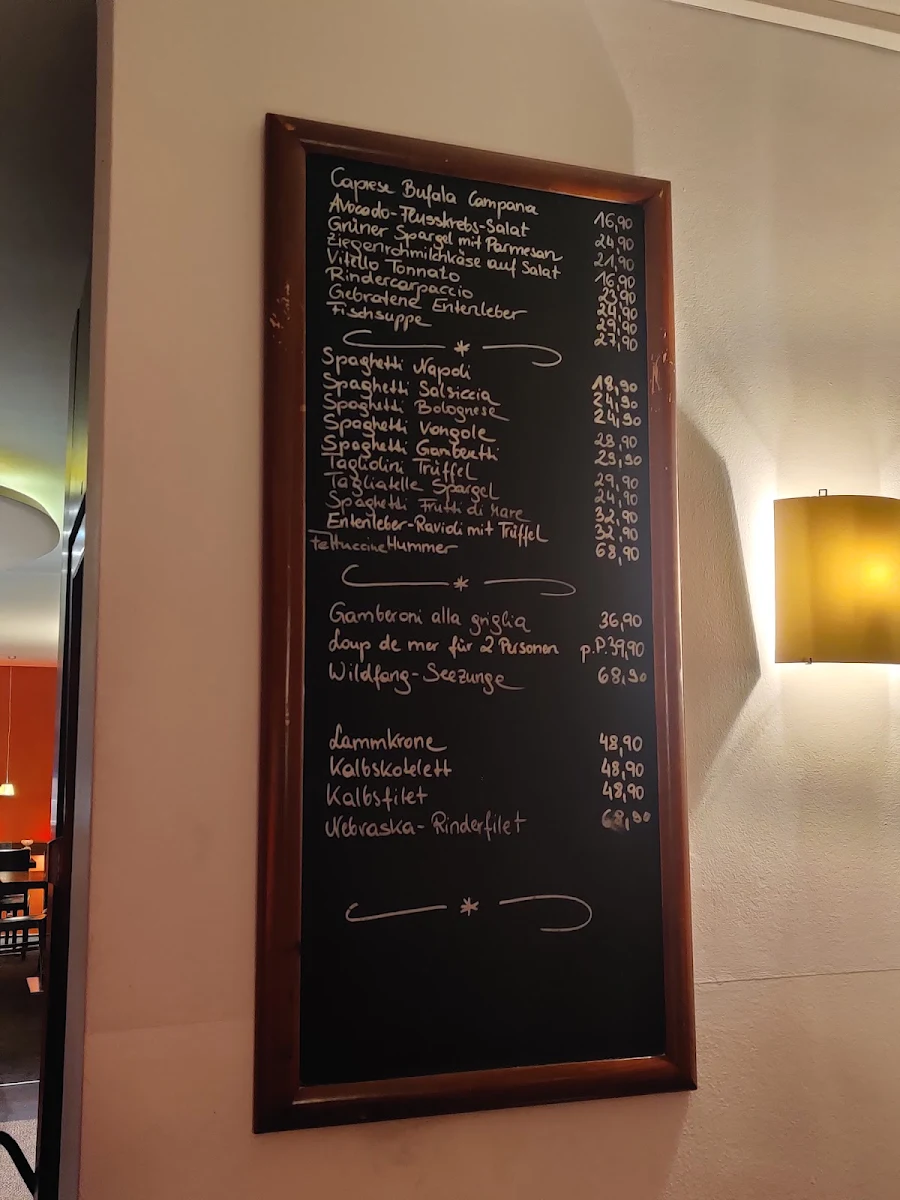 Caprese Bufala Campana 16,90
Avocado-Flusskrebs-Salat 24,90
Grüner Spargel mit Parmesan 21,90
Ziegenrohmilchkäse auf Salat 16,90
Vitello Tonnato 23,90
Rindercarpaccio 24,90
Gebratene Entenleber 29,90
Fischsuppe 27,90
Spaghetti Napoli 18,90
Spaghetti Salsiccia 24,90
Spaghetti Bolognese 24,90
Spaghetti Vongole 28,90
Spaghetti Gamberetti 29,90
Tagliolini Trüffel 29,90
Tagliatelle Spargel 24,90
Spaghetti Frutti di Mare 32,90
Entenleber-Ravioli mit Trüffel 32,90
Fettuccine Hummer 68,90
Gamberoni alla griglia 36,90
Loup de mer für 2 Personen p.P. 39,90
Wildfang-Seezunge 68,90
Lammkrone 48,90
Kalbskotelett 48,90
Kalbsfilet 48,90
Nebraska-Rinderfilet 68,90